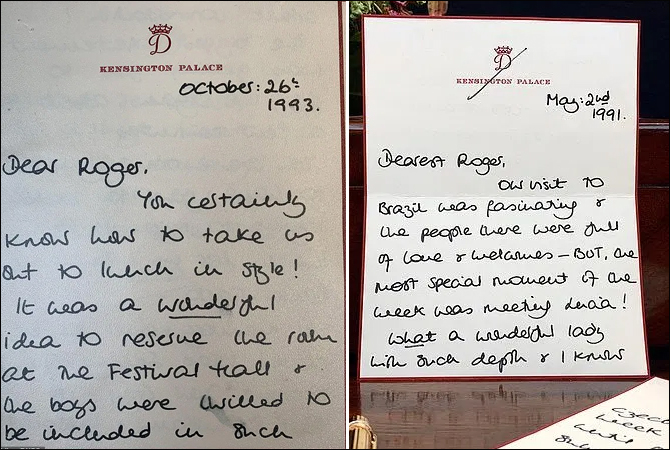 D
KENSINGTON PALACE
October: 26th
1993.
Dear Roger,
You certainly
know how to take us
out to lunch in style!
It was a wonderful
idea to reserve the room
at the Festival Hall &
the boys were thrilled to
be included in such
D
KENSINGTON PALACE
May: 2nd
1991.
Dearest Roger,
Our visit to
Brazil was fascinating &
the people there were full
of love & welcomes – BUT, the
most special moment of the
week was meeting Lucia!
What a wonderful lady
with such depth & I know
Czech
week